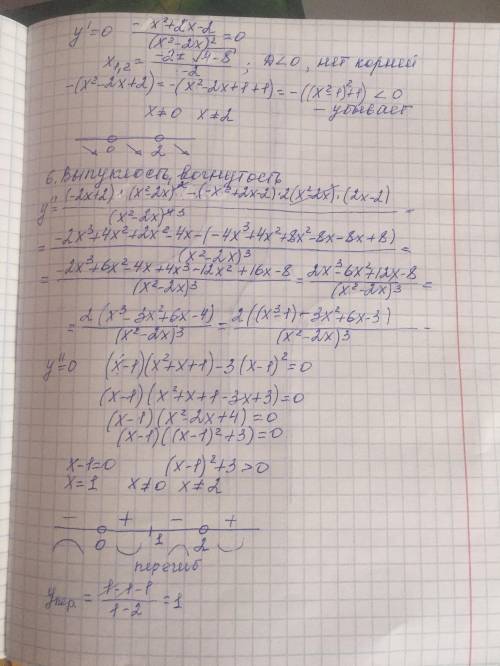 y'=0  (-x²+2x-2)/(x²-2x)²=0
x₁,₂= (-2±√4-8)/-2 ; D<0, нет корней
-(x²-2x+2)=-(x²-2x+1+1)=-((x-1)²+1)<0
x≠0  x≠2  - убывает
0  2
6. Выпуклость, вогнутость
y''= ((-2x+2)·(x²-2x)²-(-x²+2x-2)·2(x²-2x)·(2x-2))/(x²-2x)⁴³ =
= (-2x³+4x²+2x²-4x-(-4x³+4x²+8x²-8x-8x+8))/(x²-2x)³ =
= (-2x³+6x²-4x+4x³-12x²+16x-8)/(x²-2x)³ = (2x³-6x²+12x-8)/(x²-2x)³ =
= 2(x³-3x²+6x-4)/(x²-2x)³ = 2((x³-1)-3x²+6x-3)/(x²-2x)³ -
y''=0  (x-1)(x²+x+1)-3(x-1)²=0
(x-1)(x²+x+1-3x+3)=0
(x-1)(x²-2x+4)=0
(x-1)((x-1)²+3)=0
x-1=0  (x-1)²+3>0
x=1  x≠0  x≠2
-  +  -  +
0  1  2
перегиб
yпер. = (1-1-1)/(1-2) =1